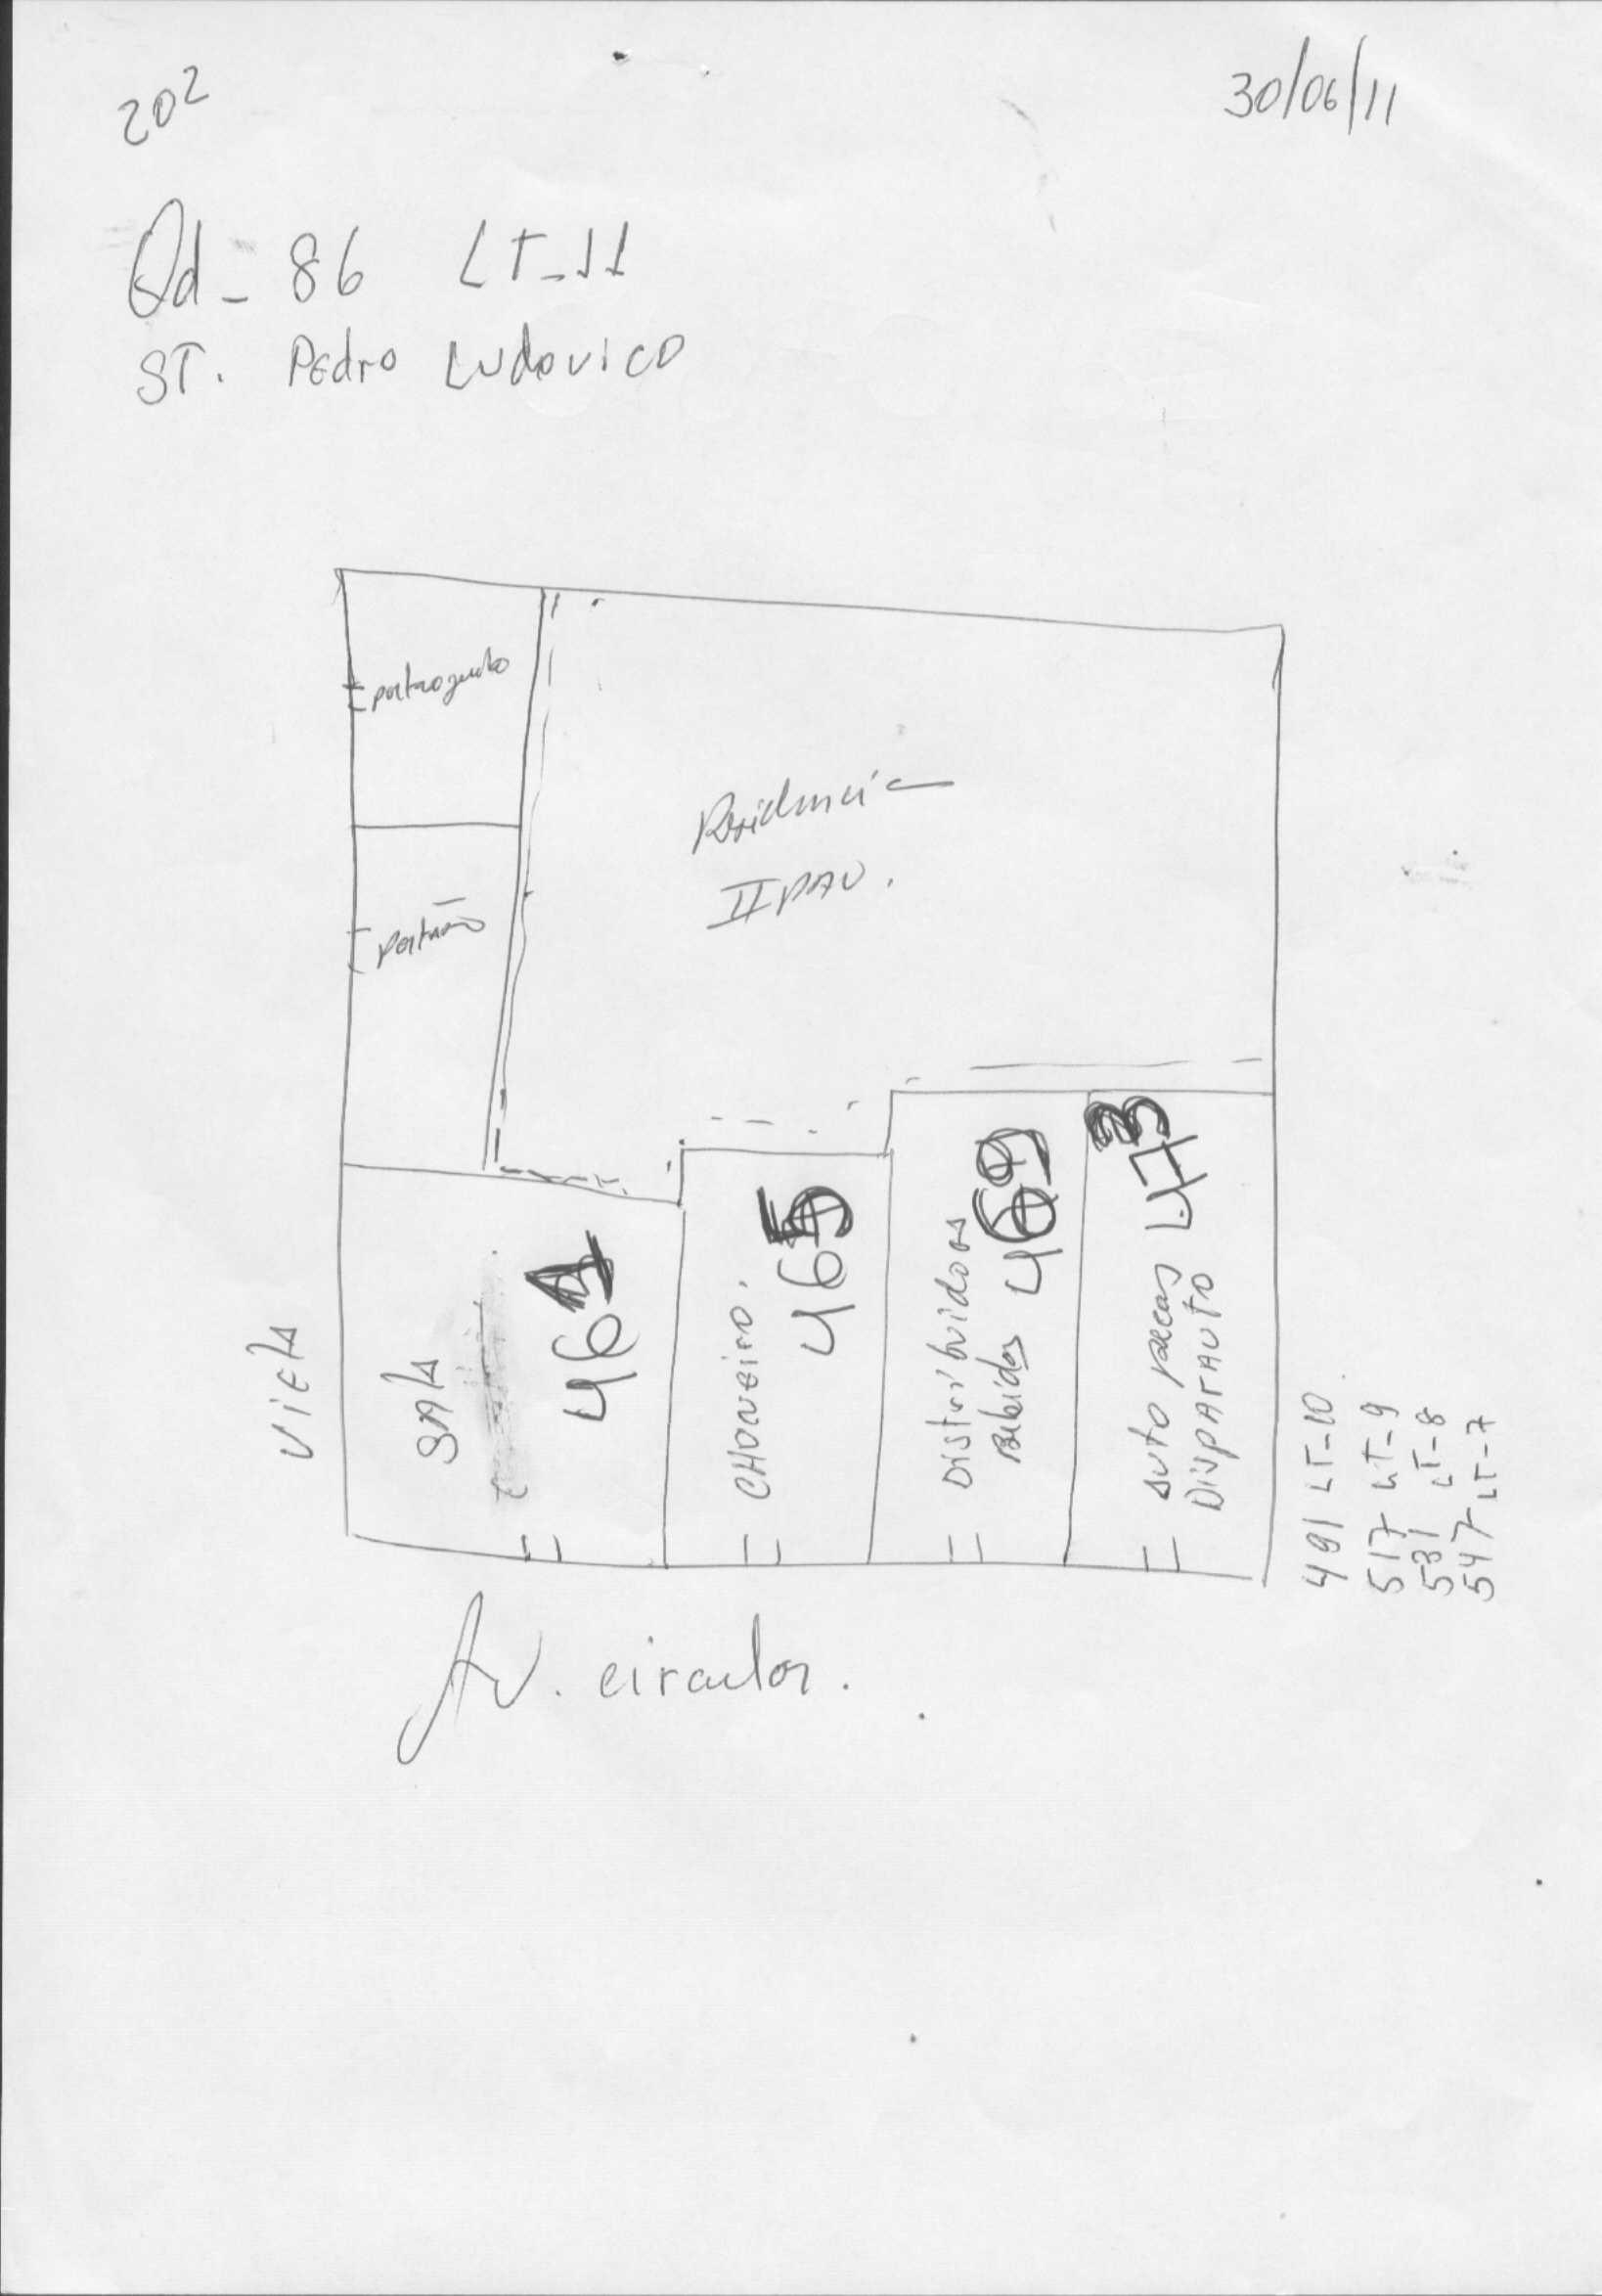 202
30/06/11
Qd - 86 LT - 11
ST. Pedro Ludovico
portao
Residencia
II PAV.
portão
Viela
SALA
461
CHAVEIRO.
465
Distribuidoas
Bebidas 469
Auto pecas 473
DisPArAUTO
491 LT-10
517 LT-9
531 LT-8
547 LT-7
Av. circular.